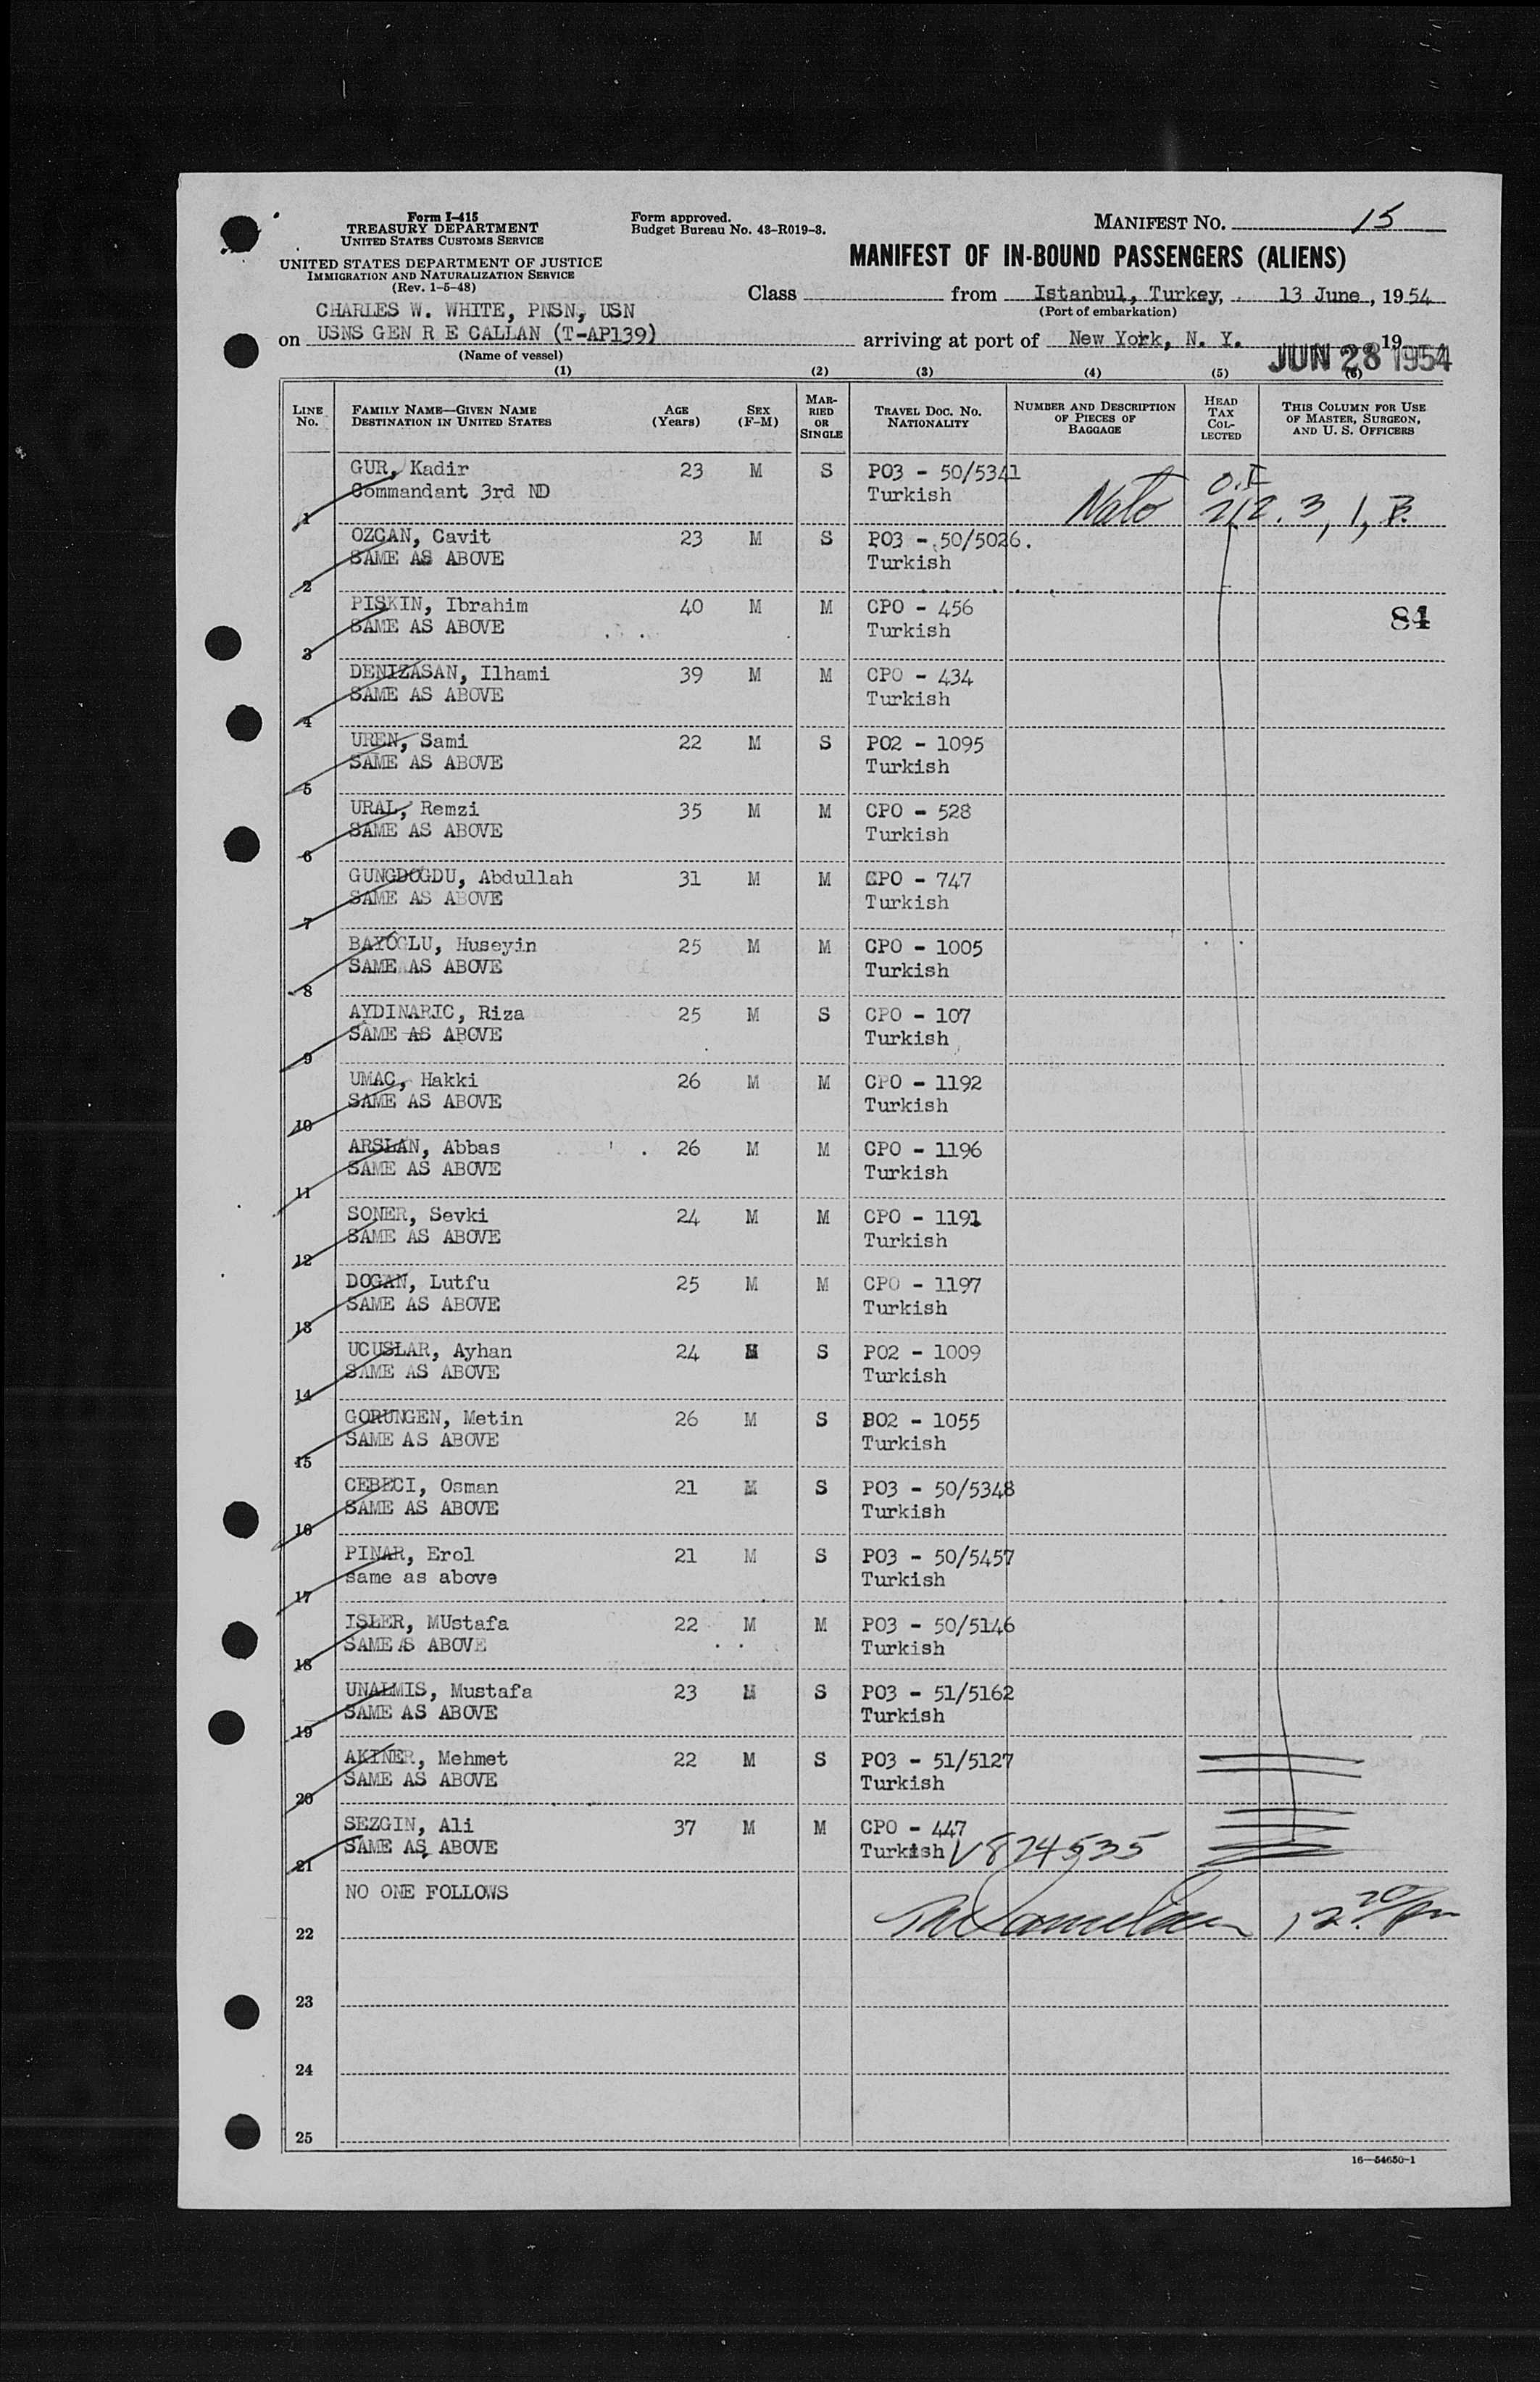 Form I-415
TREASURY DEPARTMENT
UNITED STATES CUSTOMS SERVICE
UNITED STATES DEPARTMENT OF JUSTICE
IMMIGRATION AND NATURALIZATION SERVICE
(Rev. 1-5-48)
Form approved.
Budget Bureau No. 43-R019-3.
MANIFEST NO. 15
MANIFEST OF IN-BOUND PASSENGERS (ALIENS)
Class from Istanbul, Turkey, 13 June, 1954
(Port of embarkation)
CHARLES W. WHITE, PNSN, USN
on USNS GEN R E CALLAN (T-AP139) arriving at port of New York, N. Y. 19
JUN 28 1954
(Name of vessel)
(1) (2) (3) (4) (5) (6)
LINE No. FAMILY NAME—GIVEN NAME DESTINATION IN UNITED STATES AGE (Years) SEX (F-M) MARRIED OR SINGLE TRAVEL DOC. NO. NATIONALITY NUMBER AND DESCRIPTION OF PIECES OF BAGGAGE HEAD TAX COLLECTED THIS COLUMN FOR USE OF MASTER, SURGEON, AND U. S. OFFICERS
GUR, Kadir 23 M S PO3 - 50/5341
1 Commandant 3rd ND Turkish Nato 212. 3, 1, B.
OZCAN, Cavit 23 M S PO3 - 50/5026.
2 SAME AS ABOVE Turkish
PISKIN, Ibrahim 40 M M CPO - 456 84
3 SAME AS ABOVE Turkish
DENIZASAN, Ilhami 39 M M CPO - 434
4 SAME AS ABOVE Turkish
UREN, Sami 22 M S PO2 - 1095
5 SAME AS ABOVE Turkish
URAL, Remzi 35 M M CPO - 528
6 SAME AS ABOVE Turkish
GUNGDOGDU, Abdullah 31 M M CPO - 747
7 SAME AS ABOVE Turkish
BAYOGLU, Huseyin 25 M M CPO - 1005
8 SAME AS ABOVE Turkish
AYDINARIC, Riza 25 M S CPO - 107
9 SAME AS ABOVE Turkish
UMAC, Hakki 26 M M CPO - 1192
10 SAME AS ABOVE Turkish
ARSLAN, Abbas 26 M M CPO - 1196
11 SAME AS ABOVE Turkish
SONER, Sevki 24 M M CPO - 1191
12 SAME AS ABOVE Turkish
DOGAN, Lutfu 25 M M CPO - 1197
13 SAME AS ABOVE Turkish
UCUSLAR, Ayhan 24 M S PO2 - 1009
14 SAME AS ABOVE Turkish
GORUNGEN, Metin 26 M S PO2 - 1055
15 SAME AS ABOVE Turkish
CEBECI, Osman 21 M S PO3 - 50/5348
16 SAME AS ABOVE Turkish
PINAR, Erol 21 M S PO3 - 50/5457
17 same as above Turkish
ISLER, MUstafa 22 M M PO3 - 50/5146
18 SAME AS ABOVE Turkish
UNALMIS, Mustafa 23 M S PO3 - 51/5162
19 SAME AS ABOVE Turkish
AKINER, Mehmet 22 M S PO3 - 51/5127
20 SAME AS ABOVE Turkish
SEZGIN, Ali 37 M M CPO - 447
21 SAME AS ABOVE Turkish V874535
NO ONE FOLLOWS
22 12 20 pm
23
24
25
16—54650-1